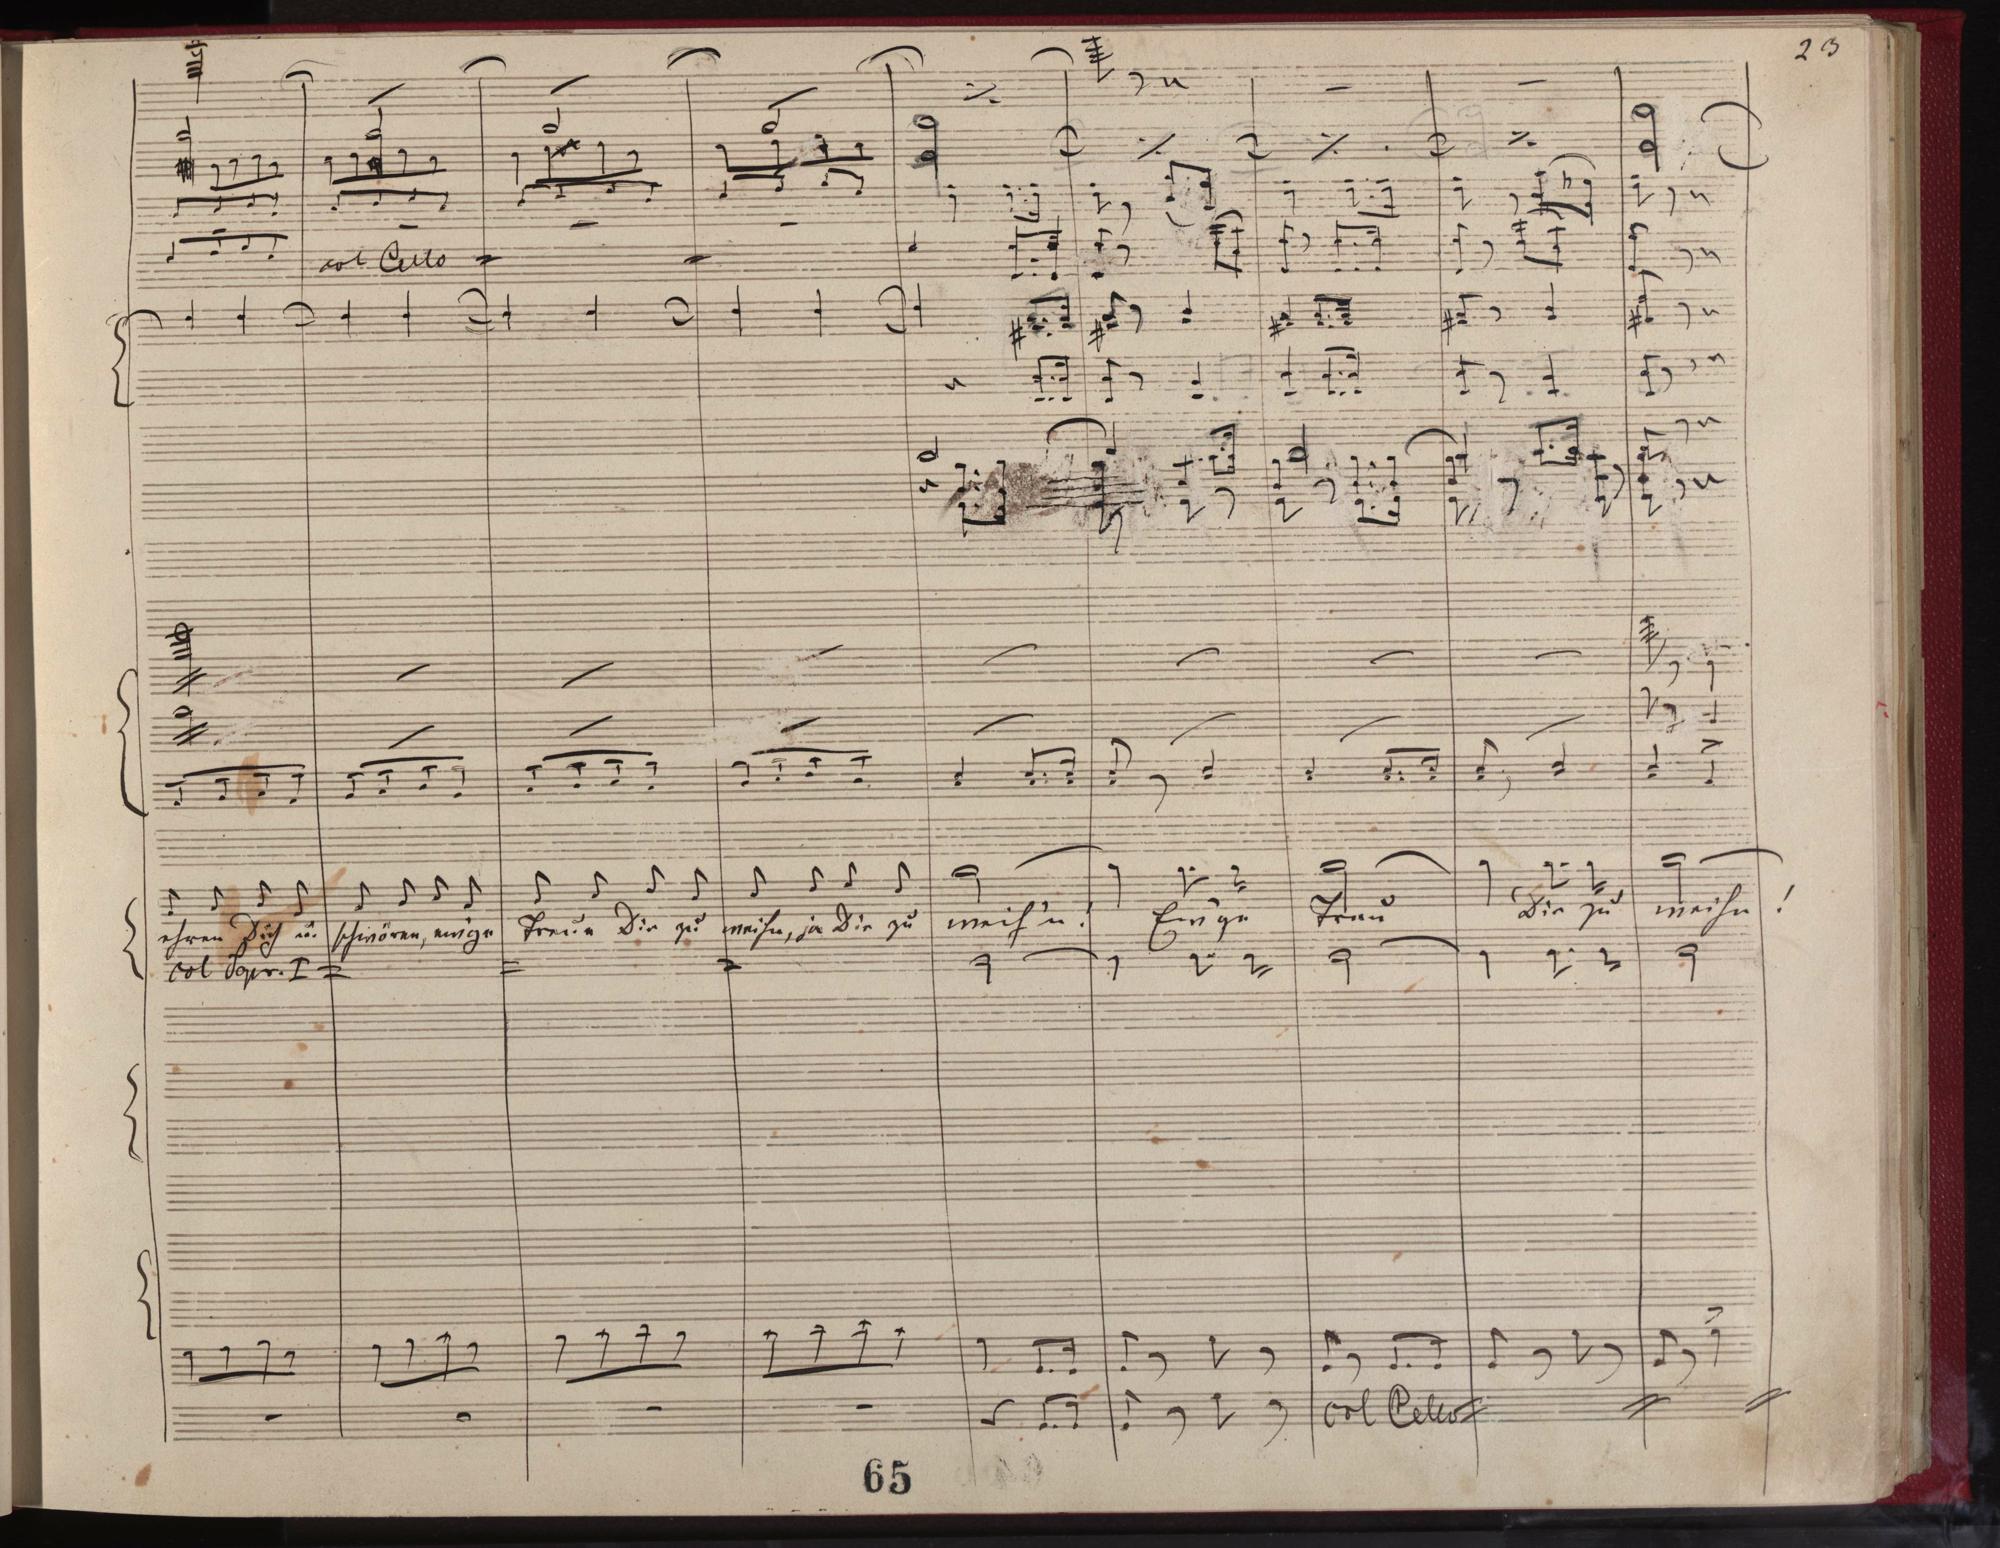 23
col Cello
ehren Dich u. schwören, ewige Treue Dir zu weihn, ja Dir zu weih'n! Ew'ge Treu Dir zu weihn!
col Sopr. I
col Cello
65